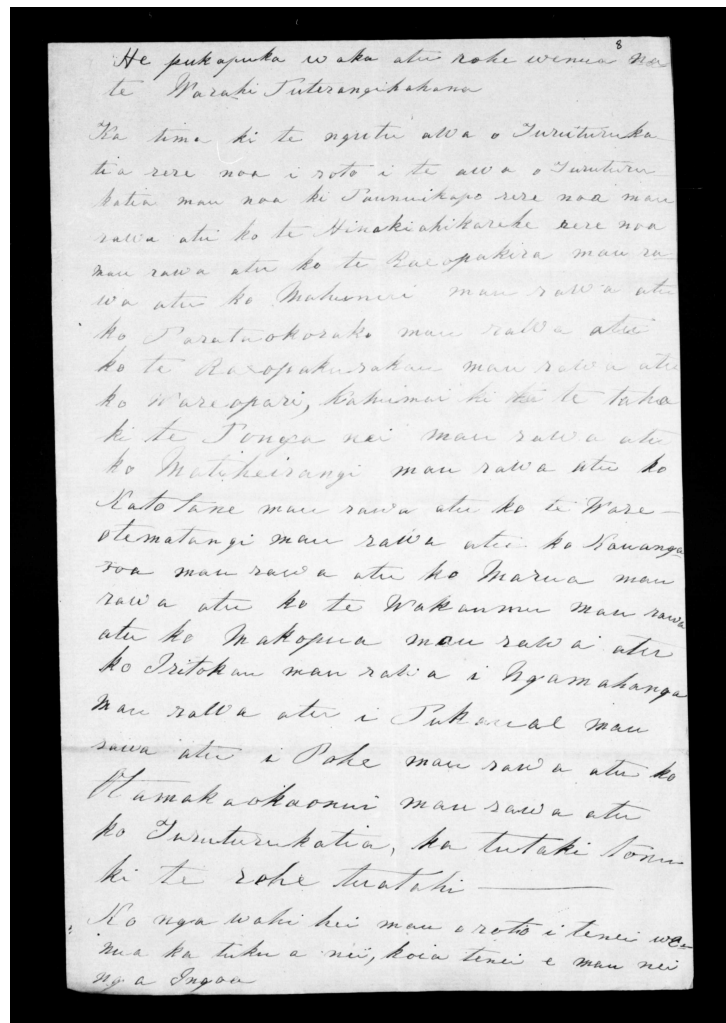 8
He pukapuka waka atu rohe wenua na
te Waraki Puterangikahana
Ka tima ki te ngutu awa o Turuturuka
tia rere noa i roto i te awa o Turuturu
katia mau noa ki Paunuikapo rere noa mau
rawa atu ko te Hinakiahikareke rere noa
mau rawa atu ko te Raeopakira mau ra
wa atu ko Mahunui mau rawa atu
ko Parataokorako mau rawa atu
ko te Raeopakurakau mau rawa atu
ko Wareopari, kahuimai ki te taha
ki te Tonga nei mau rawa atu
ko Matiheirangi mau rawa atu ko
Katotane mau rawa atu ko te Ware-
otematangi mau rawa atu ko Kauanga
roa mau rawa atu ko Marua mau
rawa atu ko te Wakaumu mau rawa
atu ko Makopua mau rawa atu
ko Iritokau mau rawa i Ngamahanga
mau rawa atu i Pukaual mau
rawa atu i Pohe mau rawa atu ko
Otamakaokaonui mau rawa atu
ko Turuturukatia, ka tutaki tonu
ki te rohe tuatahi
Ko nga wahi hei mau o roto i tenei we-
nua ka tuku a nei, koia tenei e mau nei
nga Ingoa